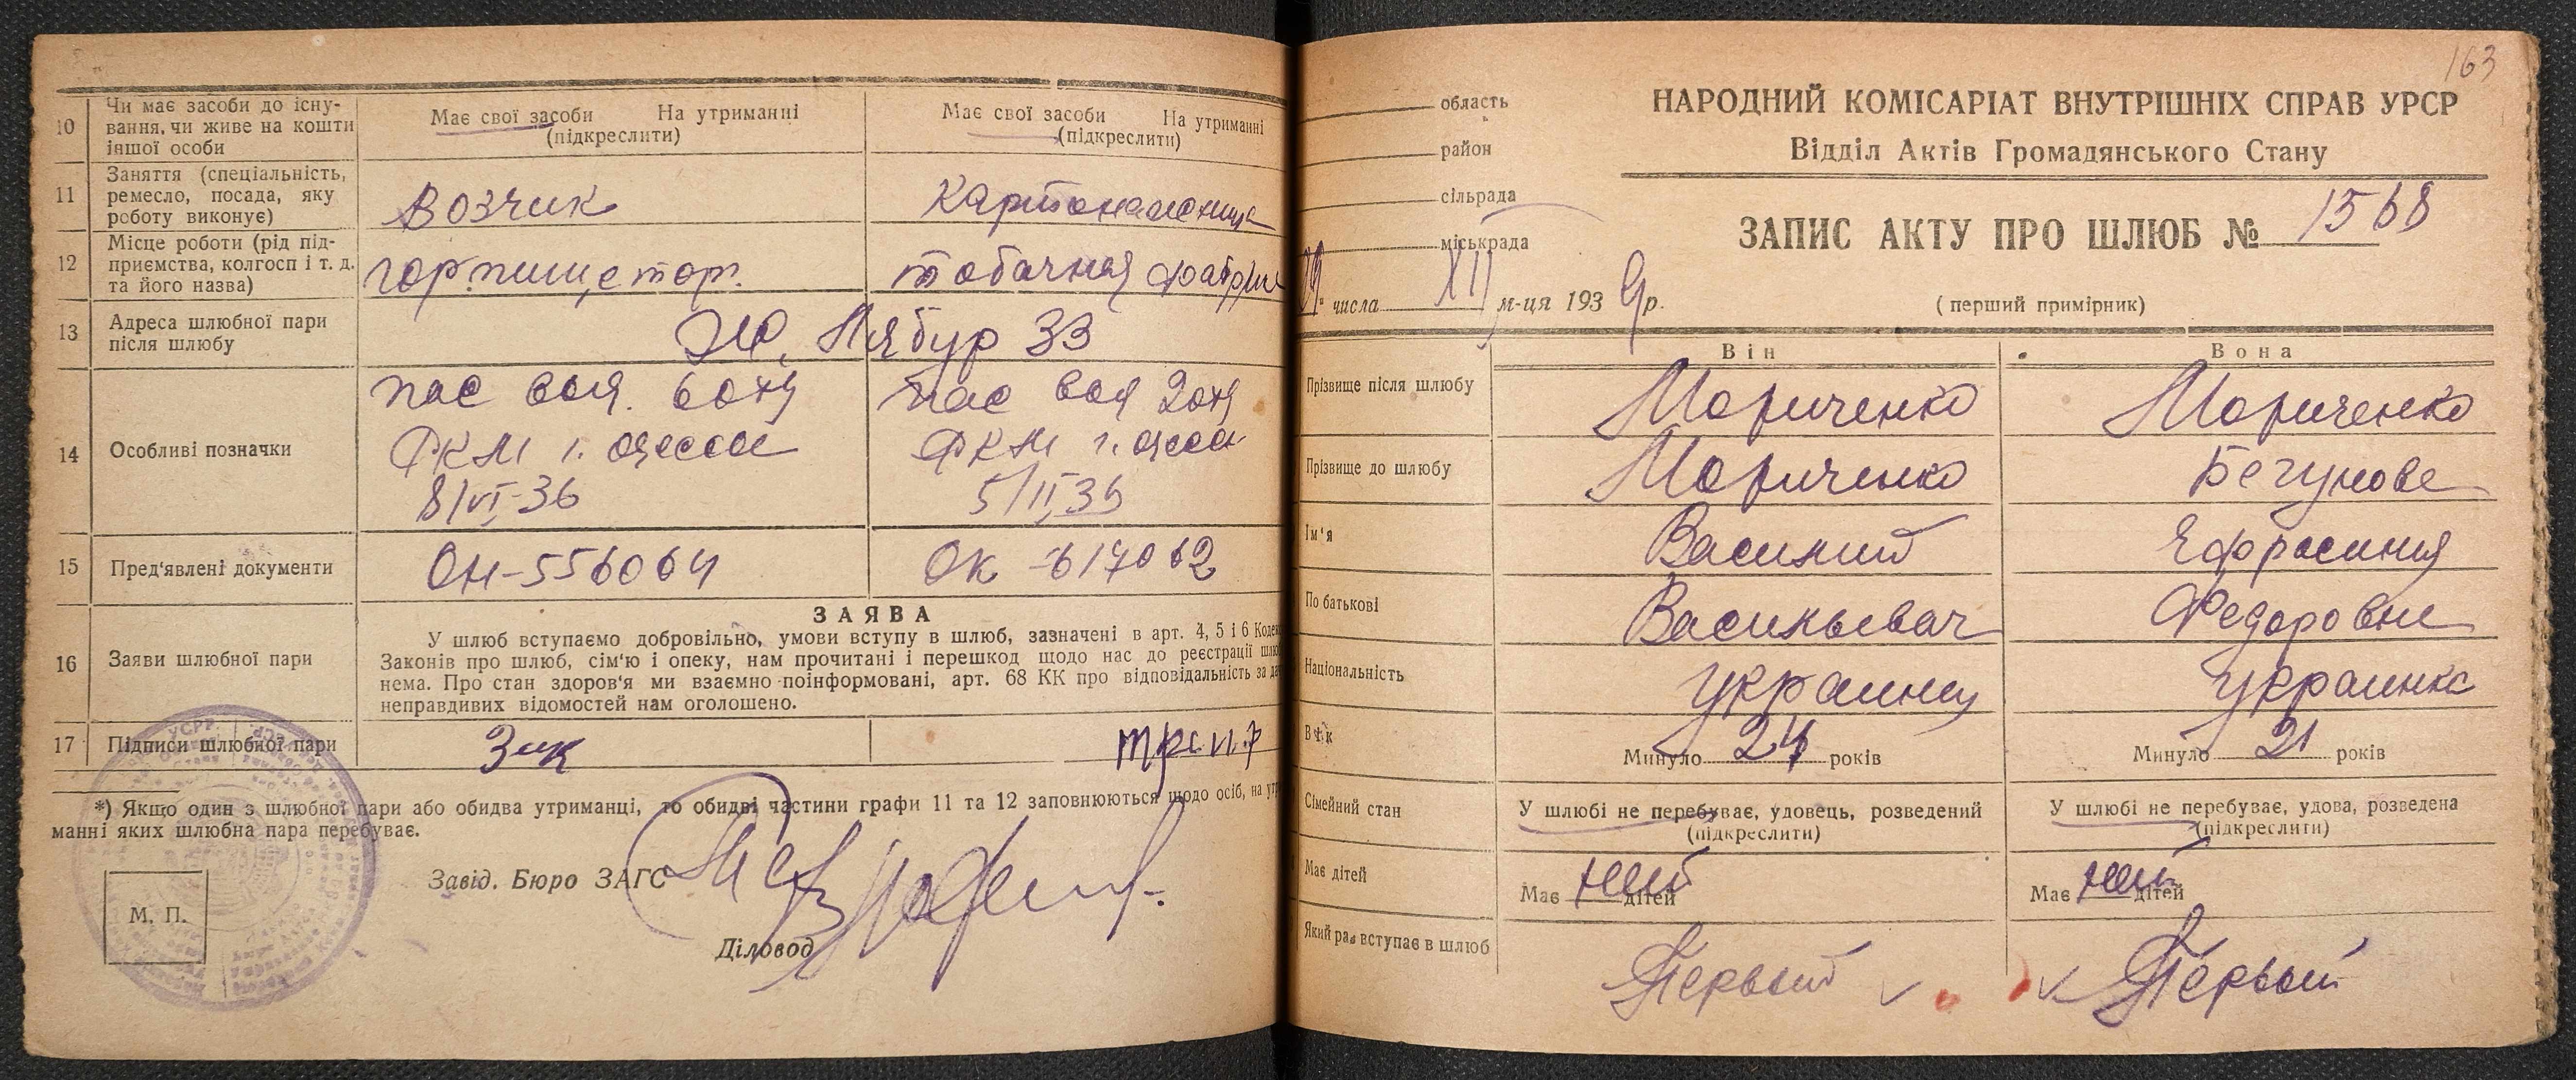 10 Чи має засоби до існу-
вання, чи живе на кошти
іншої особи
Має свої засоби На утриманні
(підкреслити)
Має свої засоби На утриманні
(підкреслити)
11 Заняття (спеціальність,
ремесло, посада, яку
роботу виконує)
Возчик
12 Місце роботи (рід під-
приємства, колгосп і т. д.
та його назва)
горпищеторг.
табачная
13 Адреса шлюбної пари
після шлюбу
33
14 Особливі позначки
РКМ г. Одессы
8/VI-36
РКМ г.
15 Пред'явлені документи
ОН-556064
ОК-617062
16 Заяви шлюбної пари
ЗАЯВА
У шлюб вступаємо добровільно, умови вступу в шлюб, зазначені в арт. 4, 5 і 6
Законів про шлюб, сім'ю і опеку, нам прочитані і перешкод щодо нас до реєстрації
нема. Про стан здоров'я ми взаємно поінформовані, арт. 68 КК про відповідальність за
неправдивих відомостей нам оголошено.
17 Підписи шлюбної пари
*) Якщо один з шлюбної пари або обидва утриманці, то обидві частини графи 11 та 12 заповнюються щодо осіб, на
манні яких шлюбна пара перебуває.
Завід. Бюро ЗАГС
М. П.
Діловод
163
область
район
сільрада
міськрада
числа XII м-ця 1939р.
НАРОДНИЙ КОМІСАРІАТ ВНУТРІШНІХ СПРАВ УРСР
Відділ Актів Громадянського Стану
ЗАПИС АКТУ ПРО ШЛЮБ № 1568
(перший примірник)
Він Вона
Прізвище після шлюбу Мориченко Мориченко
Прізвище до шлюбу Мориченко Бегунова
Ім'я Василий Ефросиния
По батькові Васильевич Федоровна
Національність украинец украинка
Вік Минуло 24 років Минуло 21 років
Сімейний стан
У шлюбі не перебуває, удовець, розведений
(підкреслити)
У шлюбі не перебуває, удова, розведена
(підкреслити)
Має дітей Має нет дітей Має нет дітей
Який раз вступає в шлюб Первый Первый